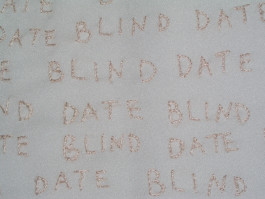 ATE
DATE BLIND DATE
E BLIND DATE
ND DATE BLIND
TE BLIND DATE
DATE BLIND